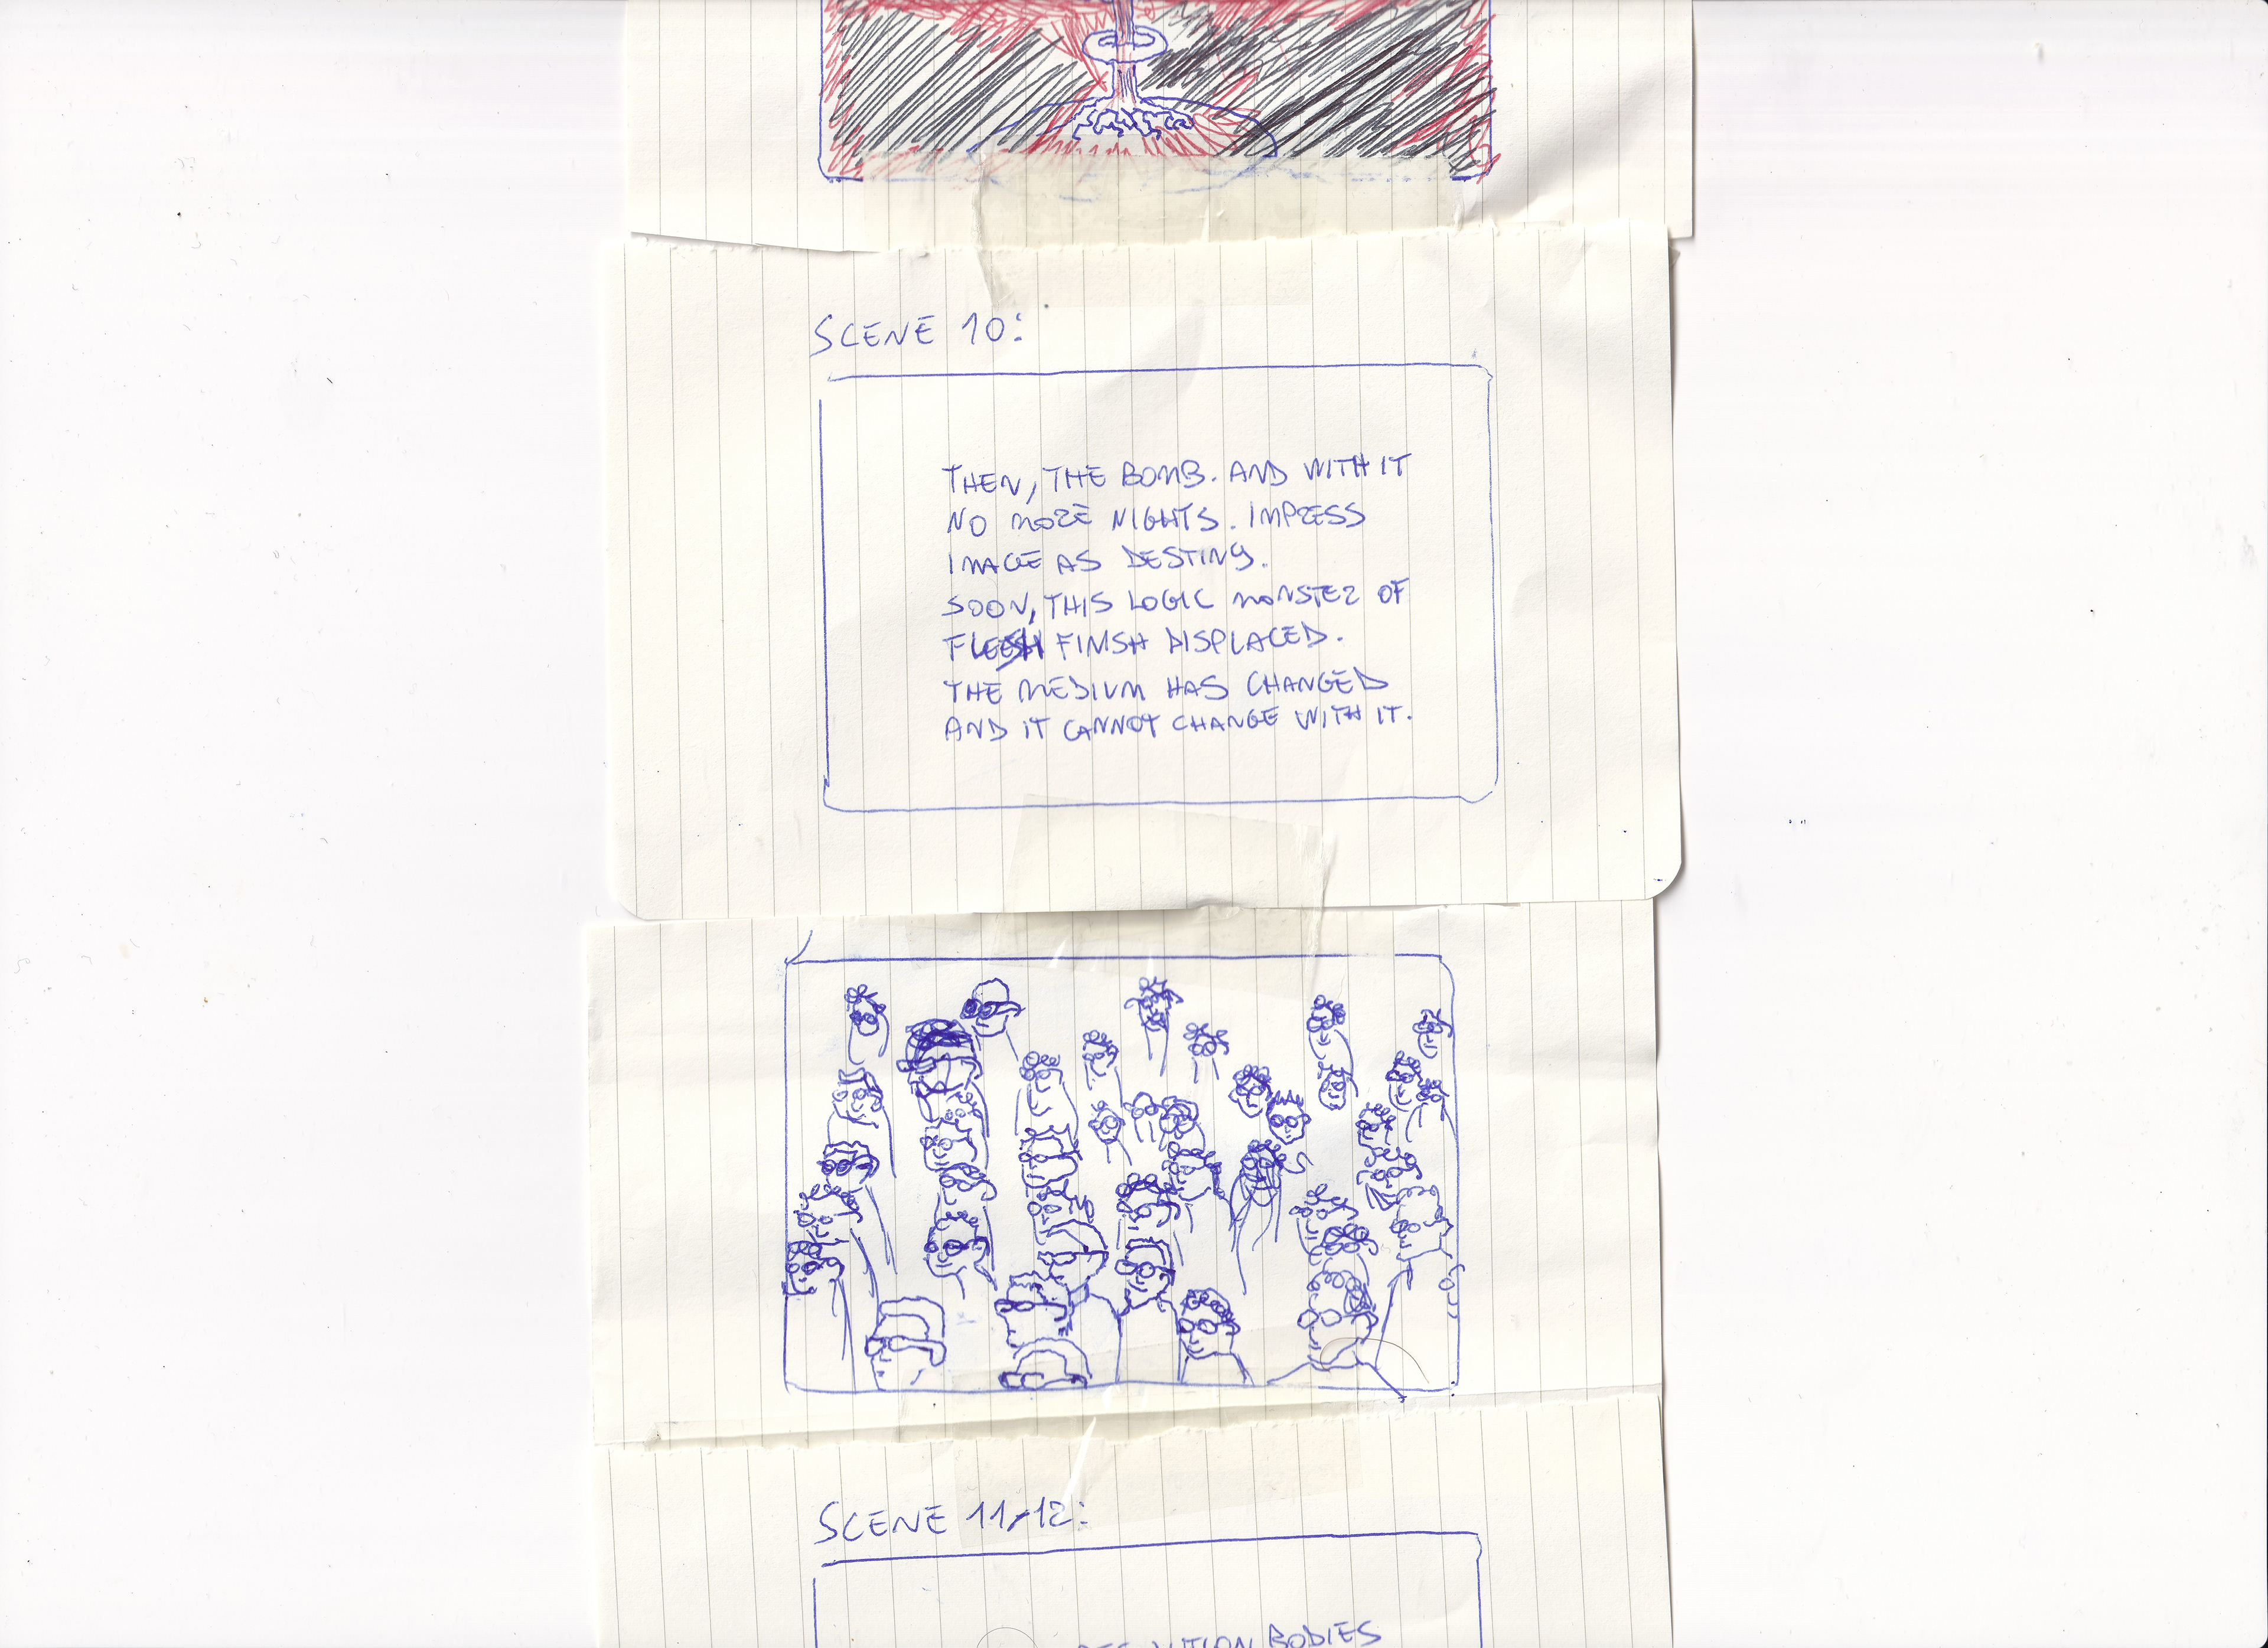 SCENE 10:
THEN, THE BOMB. AND WITH IT
NO MORE NIGHTS. IMPRESS
IMAGE AS DESTINY.
SOON, THIS LOGIC MONSTER OF
FLESH FINISH DISPLACED.
THE MEDIUM HAS CHANGED
AND IT CANNOT CHANGE WITH IT.
SCENE 11/12:
BODIES